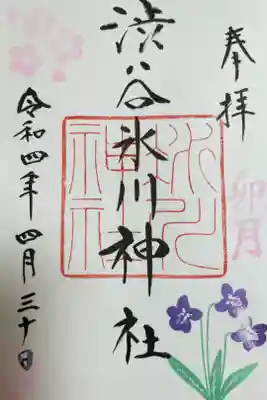 奉拝
卯月
渋谷氷川神社
氷川
神社
令和四年 四月三十日